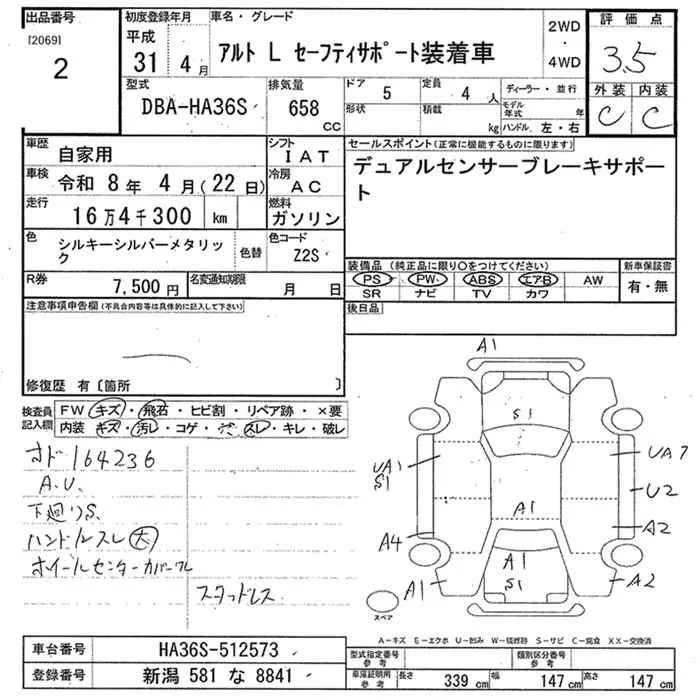 出品番号
[2069]
2
初度登録年月
平成
31 4月
車名・グレード
アルト L セーフティサポート装着車
2WD
・
4WD
評価点
3.5
外装 内装
C C
型式
DBA-HA36S
排気量
658
CC
ドア
5
定員
4人
形状
積載
kg
ディーラー・並行
モデル年式 年
ハンドル 左・右
車歴
自家用
シフト
IAT
車検
令和 8年 4月(22日)
冷房
AC
走行
16万4千300 km
燃料
ガソリン
色
シルキーシルバーメタリッ
ク
色替
色コード
Z2S
R券
7,500円
名変通知期限
月 日
セールスポイント(正常に機能するものに限ります)
デュアルセンサーブレーキサポー
ト
装備品(純正品に限り○をつけてください)
PS PW ABS エアB AW
SR ナビ TV カワ
新車保証書
有・無
後日品
注意事項申告欄(不具合内容等は具体的に記入して下さい)
修復歴 有〔箇所 〕
検査員
記入欄
FW キズ・飛石・ヒビ割・リペア跡・×要
内装 キズ・汚レ・コゲ・スレ・キレ・破レ
オド164236
A.U.
下廻りS.
ハンドルスレ(大)
ホイールセンターカバー
スタッドレス
A1
S1
UA1
S1
UA7
U2
A1
A4
A2
A1
A1
S1
A2
スペア
A-キズ E-エクボ U-凹み W-補修跡 S-サビ C-腐食 XX-交換済
車台番号
HA36S-512573
登録番号
新潟 581 な 8841
型式指定番号
参考
類別区分番号
参考
車庫証明用
参考
長さ 339 cm 幅 147 cm 高さ 147 cm